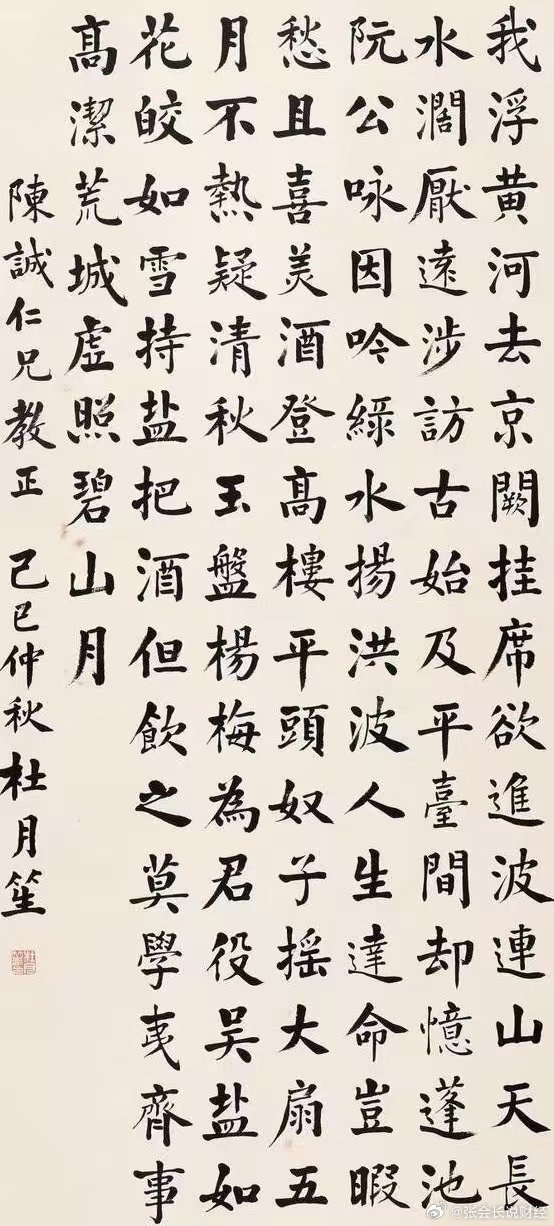 我浮黄河去京闕挂席欲進波連山天長
水濶厭遠涉訪古始及平臺間却憶蓬池
阮公咏因吟綠水揚洪波人生達命豈暇
愁且喜美酒登髙樓平頭奴子搖大扇五
月不熱疑清秋玉盤楊梅為君役吴盐如
花皎如雪持盐把酒但飲之莫學夷齊事
髙潔荒城虛照碧山月
陳誠仁兄教正 己巳仲秋杜月笙
@张会长说财经